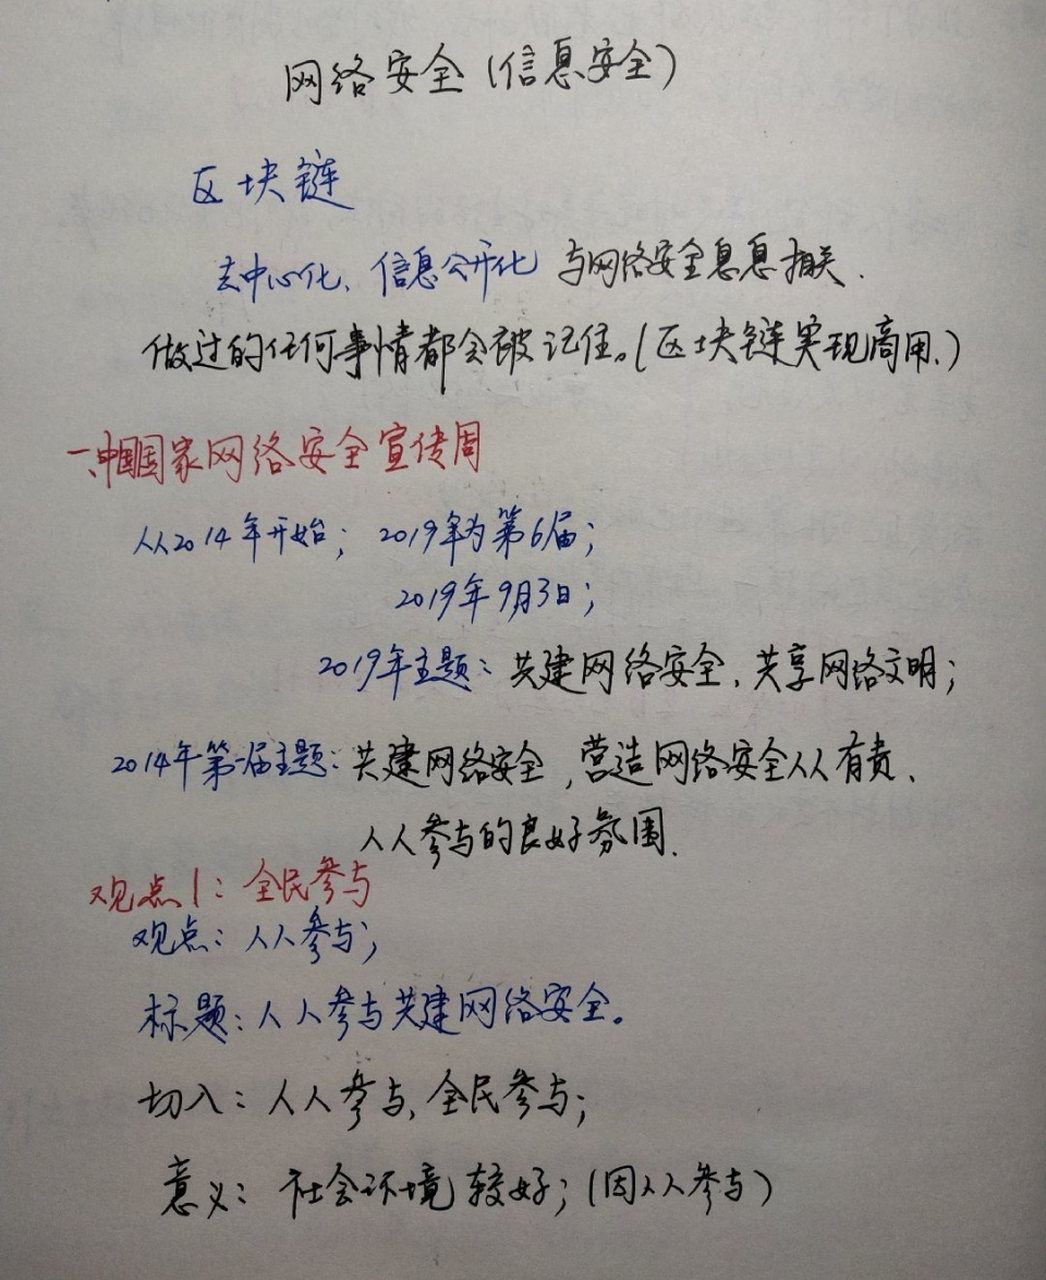 网络安全(信息安全)
区块链
去中心化、信息公开化 与网络安全息息相关.
做过的任何事情都会被记住。(区块链实现商用.)
一、中国国家网络安全宣传周
从2014年开始; 2019年为第6届;
2019年9月3日;
2019年主题: 共建网络安全、共享网络文明;
2014年第一届主题: 共建网络安全,营造网络安全人人有责、
人人参与的良好氛围.
观点1: 全民参与
观点: 人人参与;
标题: 人人参与共建网络安全。
切入: 人人参与, 全民参与;
意义: 社会环境较好; (因人人参与)